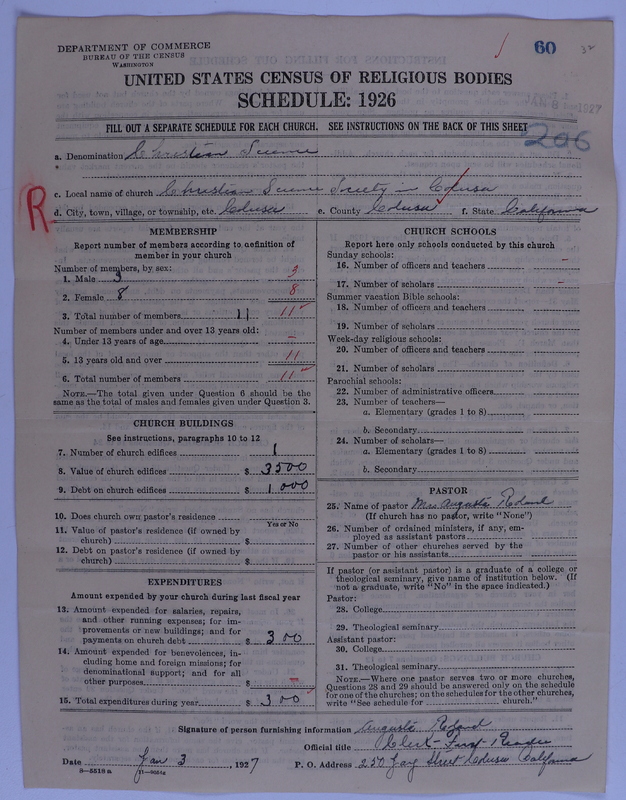 DEPARTMENT OF COMMERCE
BUREAU OF THE CENSUS
WASHINGTON
60
32
UNITED STATES CENSUS OF RELIGIOUS BODIES
SCHEDULE: 1926
JAN 8 1927
FILL OUT A SEPARATE SCHEDULE FOR EACH CHURCH. SEE INSTRUCTIONS ON THE BACK OF THIS SHEET
206
a. Denomination Christian Science
R
c. Local name of church Christian Science Society in Colusa
d. City, town, village, or township, etc. Colusa e. County Colusa f. State California
MEMBERSHIP
Report number of members according to definition of
member in your church
Number of members, by sex:
1. Male 3 3
2. Female 8 8
3. Total number of members 11 11
Number of members under and over 13 years old:
4. Under 13 years of age –
5. 13 years old and over 11
6. Total number of members 11
NOTE.—The total given under Question 6 should be the
same as the total of males and females given under Question 3.
CHURCH BUILDINGS
See instructions, paragraphs 10 to 12
7. Number of church edifices 1
8. Value of church edifices $ 3500
9. Debt on church edifices $ 1000
10. Does church own pastor's residence
Yes or No
11. Value of pastor's residence (if owned by
church) $
12. Debt on pastor's residence (if owned by
church) $
EXPENDITURES
Amount expended by your church during last fiscal year
13. Amount expended for salaries, repairs,
and other running expenses; for im-
provements or new buildings; and for
payments on church debt $ 300
14. Amount expended for benevolences, in-
cluding home and foreign missions; for
denominational support; and for all
other purposes $ –
15. Total expenditures during year $ 300
CHURCH SCHOOLS
Report here only schools conducted by this church
Sunday schools:
16. Number of officers and teachers –
17. Number of scholars –
Summer vacation Bible schools:
18. Number of officers and teachers
19. Number of scholars
Week-day religious schools:
20. Number of officers and teachers
21. Number of scholars
Parochial schools:
22. Number of administrative officers
23. Number of teachers—
a. Elementary (grades 1 to 8)
b. Secondary
24. Number of scholars—
a. Elementary (grades 1 to 8)
b. Secondary
PASTOR
25. Name of pastor Mrs Augusta Roland
(If church has no pastor, write "None")
26. Number of ordained ministers, if any, em-
ployed as assistant pastors
27. Number of other churches served by the
pastor or his assistants
If pastor (or assistant pastor) is a graduate of a college or
theological seminary, give name of institution below. (If
not a graduate, write "No" in the space indicated.)
Pastor:
28. College
29. Theological seminary
Assistant pastor:
30. College
31. Theological seminary
NOTE.—Where one pastor serves two or more churches,
Questions 28 and 29 should be answered only on the schedule
for one of the churches; on the schedules for the other churches,
write "See schedule for church."
Signature of person furnishing information Augusta Roland
Official title Clerk First Reader
Date Jan 3, 1927 P. O. Address 257 Jay Street Colusa California
8—5518 a 11—9554a